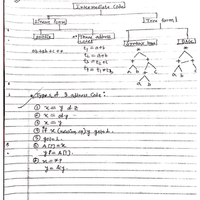 Intermediate Code
Linear form
Tree form
Postfix
Three address code
Syntax tree
DAG
t1 = a+b
t2 = a+b
t3 = t2+c
t4 = t1+t3
Types of 3 address code:
① x = y op z
② x = op y
③ x = y
④ if x (relop) y goto L
⑤ goto L
⑥ A[i] = x
y = A[i].
⑦ x = *P
y = &y.